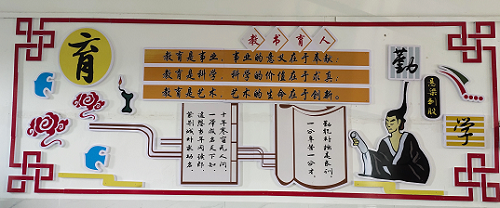 教书育人
育
教育是事业，事业的意义在于奉献；
教育是科学，科学的价值在于求真；
教育是艺术，艺术的生命在于创新。
十年寒窗无人问，
一举成名天下知，
勤能补拙是良训，
一分辛苦一分才。
勤
悬梁刺股
学